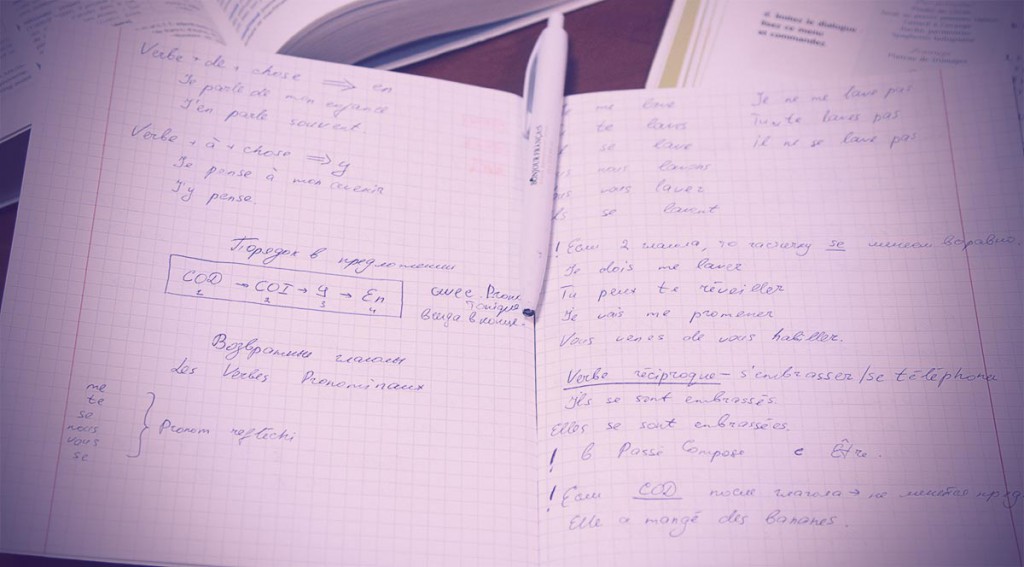 Verbe + de + chose ⇒ en
Je parle de mon enfance
J'en parle souvent.
Verbe + à + chose ⇒ y
Je pense à mon avenir
J'y pense.
Порядок в предложении
COD → COI → y → En
1 2 3 4
avec Pronom
Tonique
всегда в конце.
Возвратные глаголы
Les Verbes Pronominaux
me
te
se
nous
vous
se
Pronom reflechi
me lave
te laves
se lave
nous lavons
vous lavez
se lavent
Je ne me lave pas
Tu te laves pas
il ne se lave pas
! Если 2 глагола, то частичку se
Je dois me laver
Tu peux te réveiller
Je vais me promener
Vous venes de vous habiller.
Verbe réciproque – s'embrasser/se téléphone
Ils se sont embrassés.
Elles se sont enbrassées.
! в Passé Compose с Être.
! Если COD после глагола → не
Elle a mangé des bananes.
d. Imitez le dialogue
lisez ce menu
et commandez